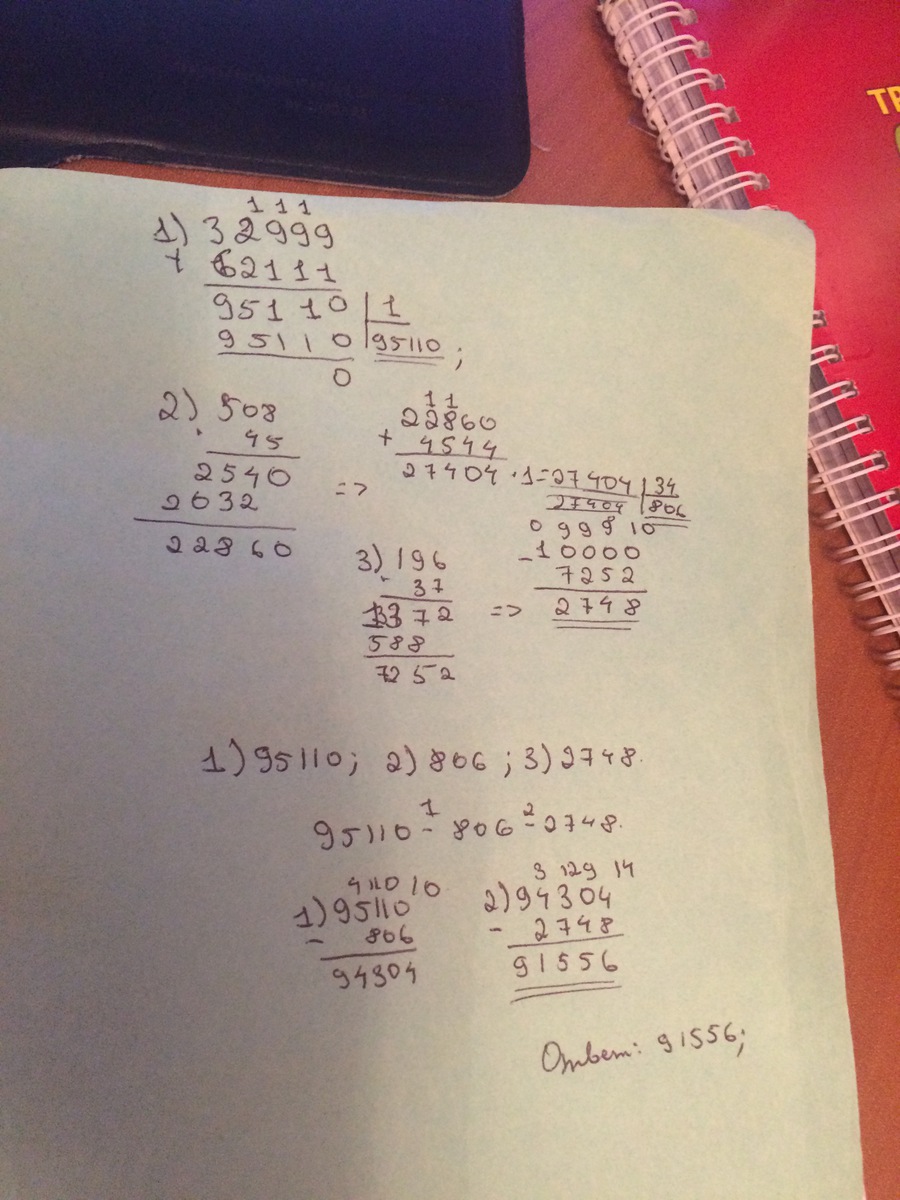 1 1 1
1) 32999
+ 62111
95110 | 1
95110 | 95110 ;
0
2) 508
· 45
2540
2032
22860
=>
1 1
22860
+ 4544
27404 · 1 = 27404 | 34
27404 | 806
3) 196
· 37
1372
588
7252
=>
0 9 9 9 10
- 10000
7252
2748
1) 95110; 2) 806 ; 3) 2748.
1 2
95110 - 806 - 2748.
4 11 0 10
1) 95110
- 806
94304
3 12 9 14
2) 94304
- 2748
91556
Ответ: 91556;
ТР